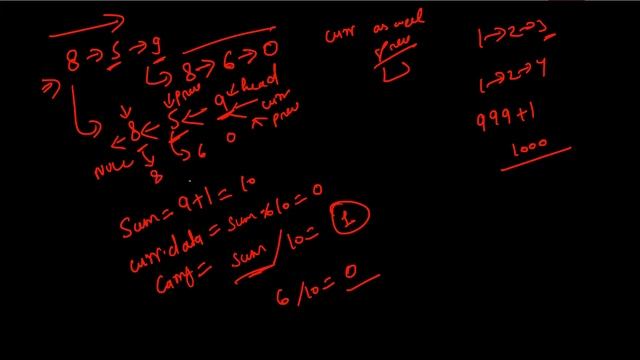 8 → 5 → 9
8 → 6 → 0
prev
NULL ← 8 ← 5 ← 9 ← head
curr
prev
8 6 0
Sum = 9 + 1 = 10
curr.data = sum % 10 = 0
Carry = sum / 10 = 1
6 / 10 = 0
curr as well
prev
1 → 2 → 3
1 → 2 → 4
999 + 1
1000